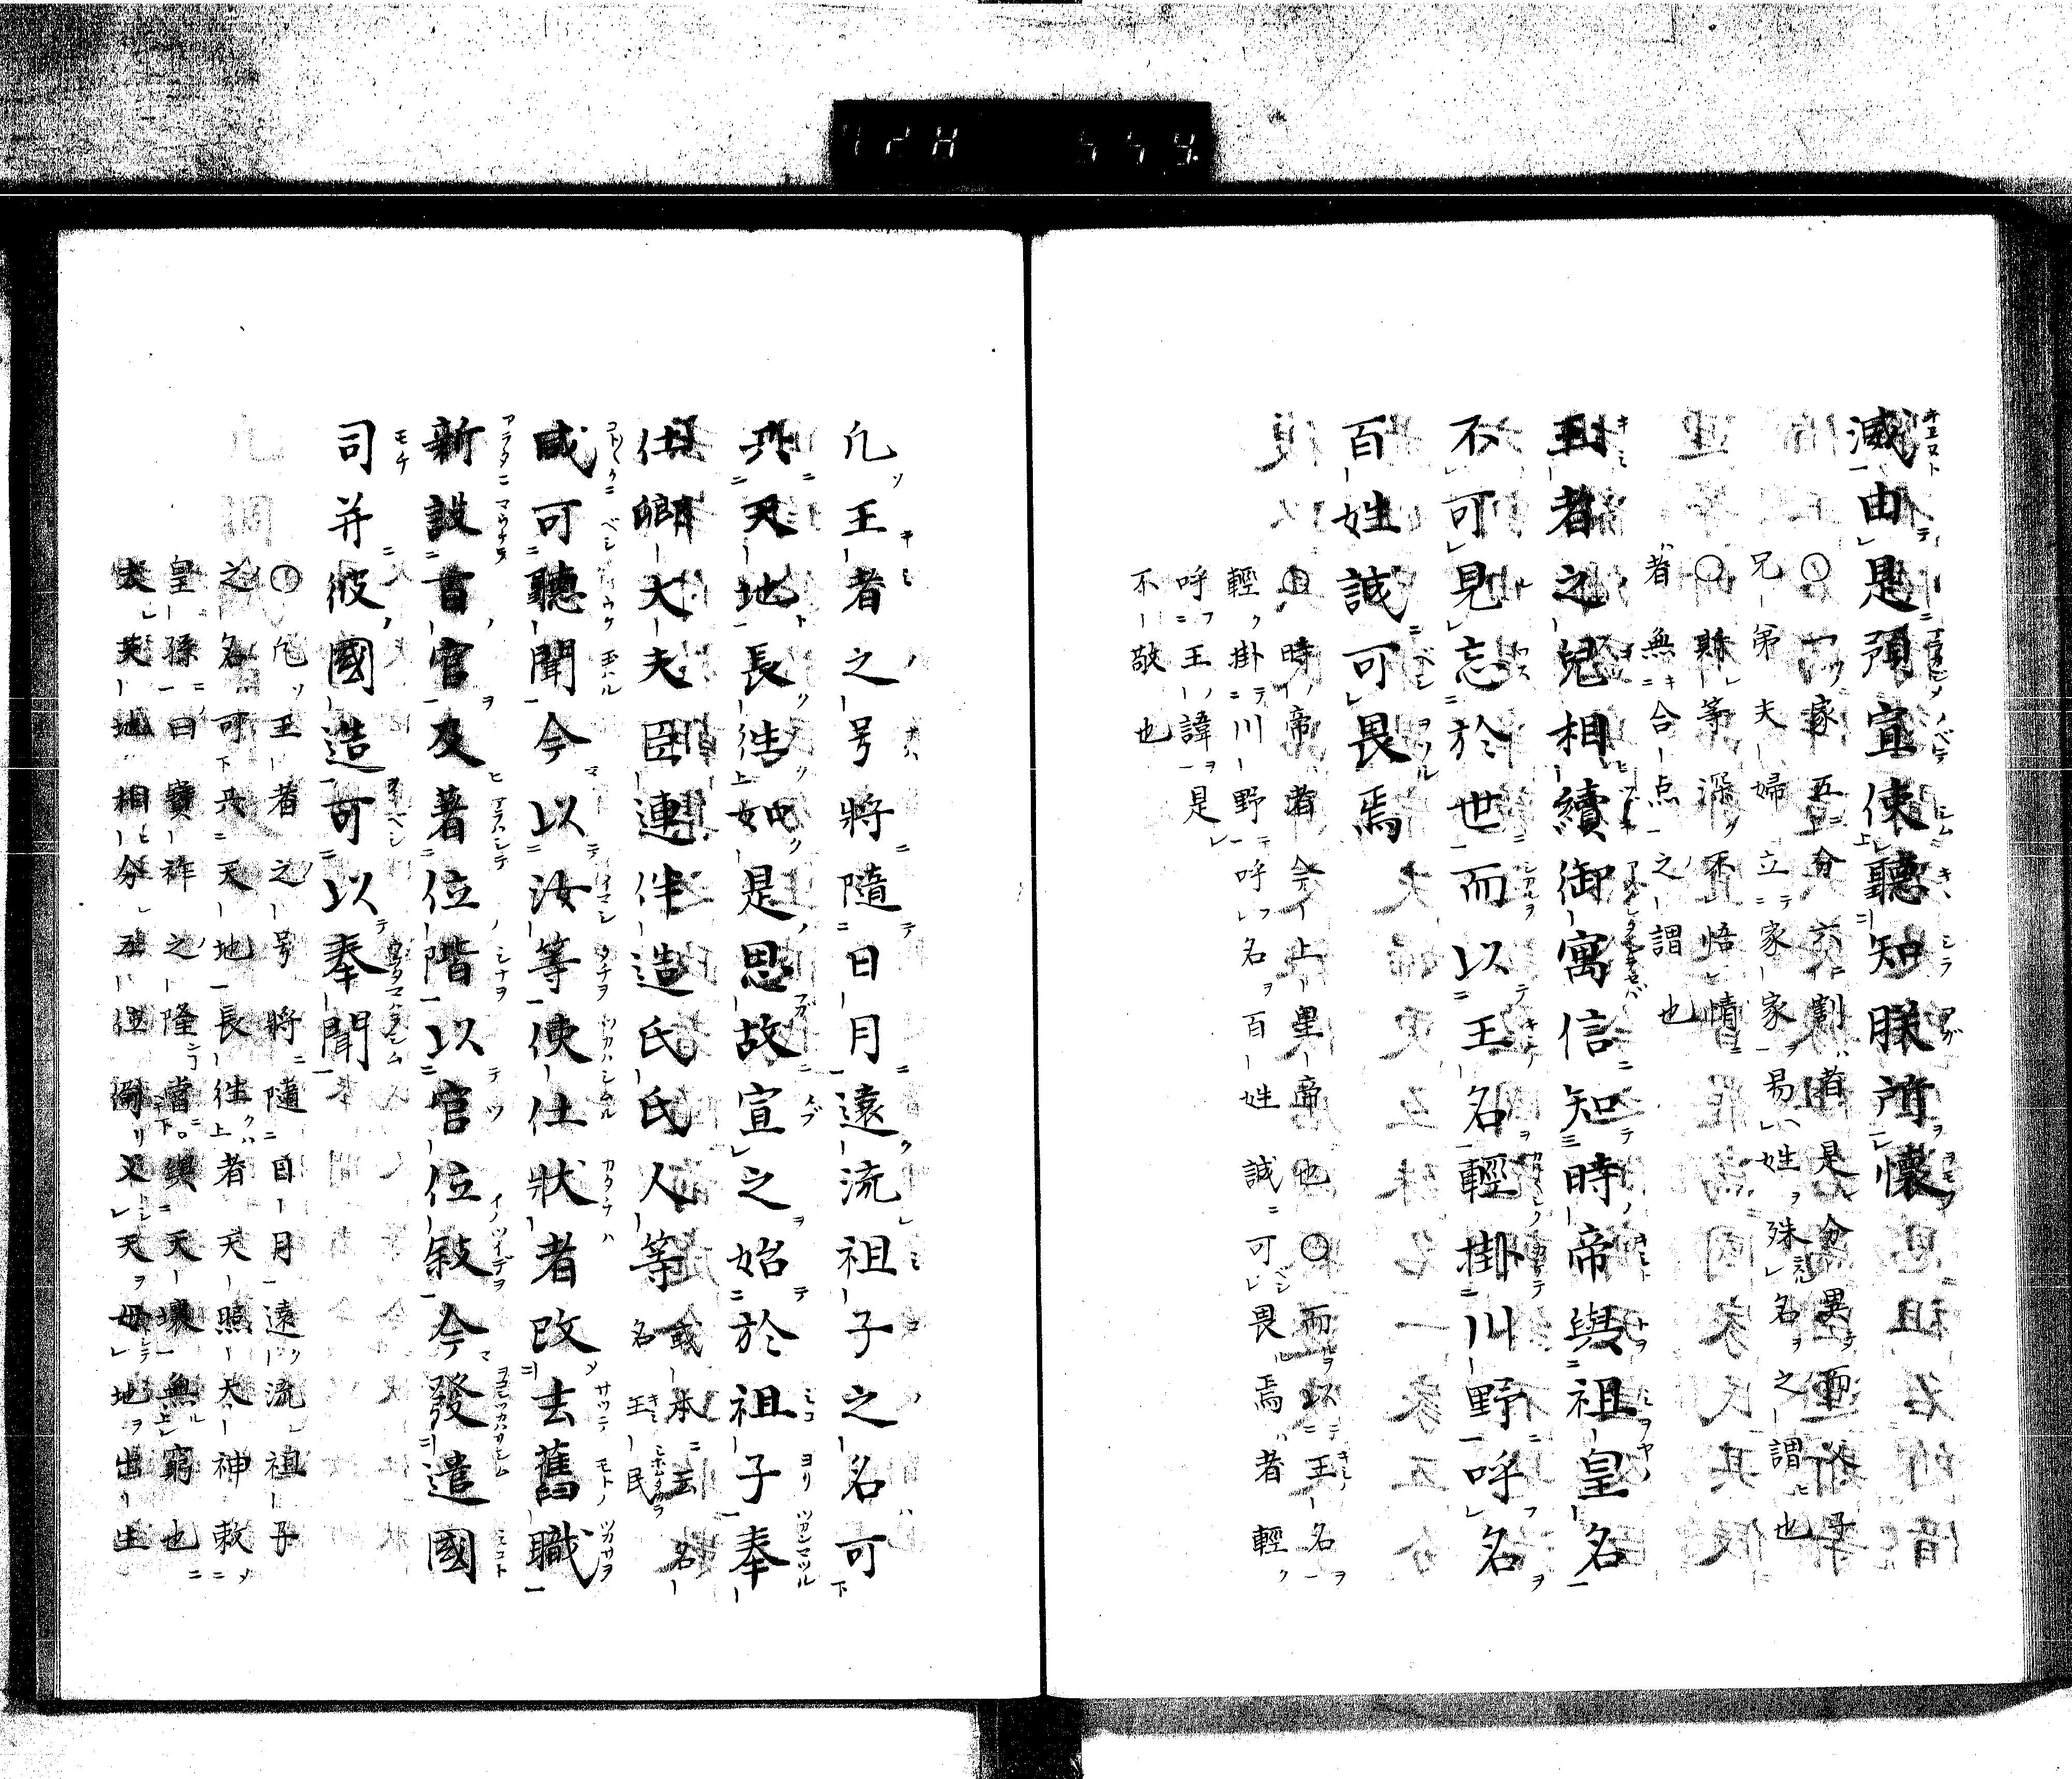 滅由是預宣使聽知朕所懷
○一家五分六割者是分異而父子
兄弟夫婦立家家易姓殊名之謂也
○財等深不悟情
者無合点之謂也
王者之兒相續御寓信知時帝與祖皇名
不可見忘於世而以王名輕掛川野呼名
百姓誠可畏焉
○時帝者今上皇帝也○而以王名
輕掛川野呼名百姓誠可畏焉者輕
呼王諱是
不敬也
凡王者之号將隨日月遠流祖子之名可
共天地長徃如是思故宣之始於祖子奉
仕卿大夫臣連伴造氏氏人等或本云名名王民
咸可聽聞今以汝等使仕狀者改去舊職
新設百官及著位階以官位敍今發遣國
司并彼國造可以奉聞
○凡王者之号將隨日月遠流祖子
之名可共天地長徃者天照太神敕
皇孫曰寶祚之隆當與天壤無窮也
夫天地相分
天母地出生